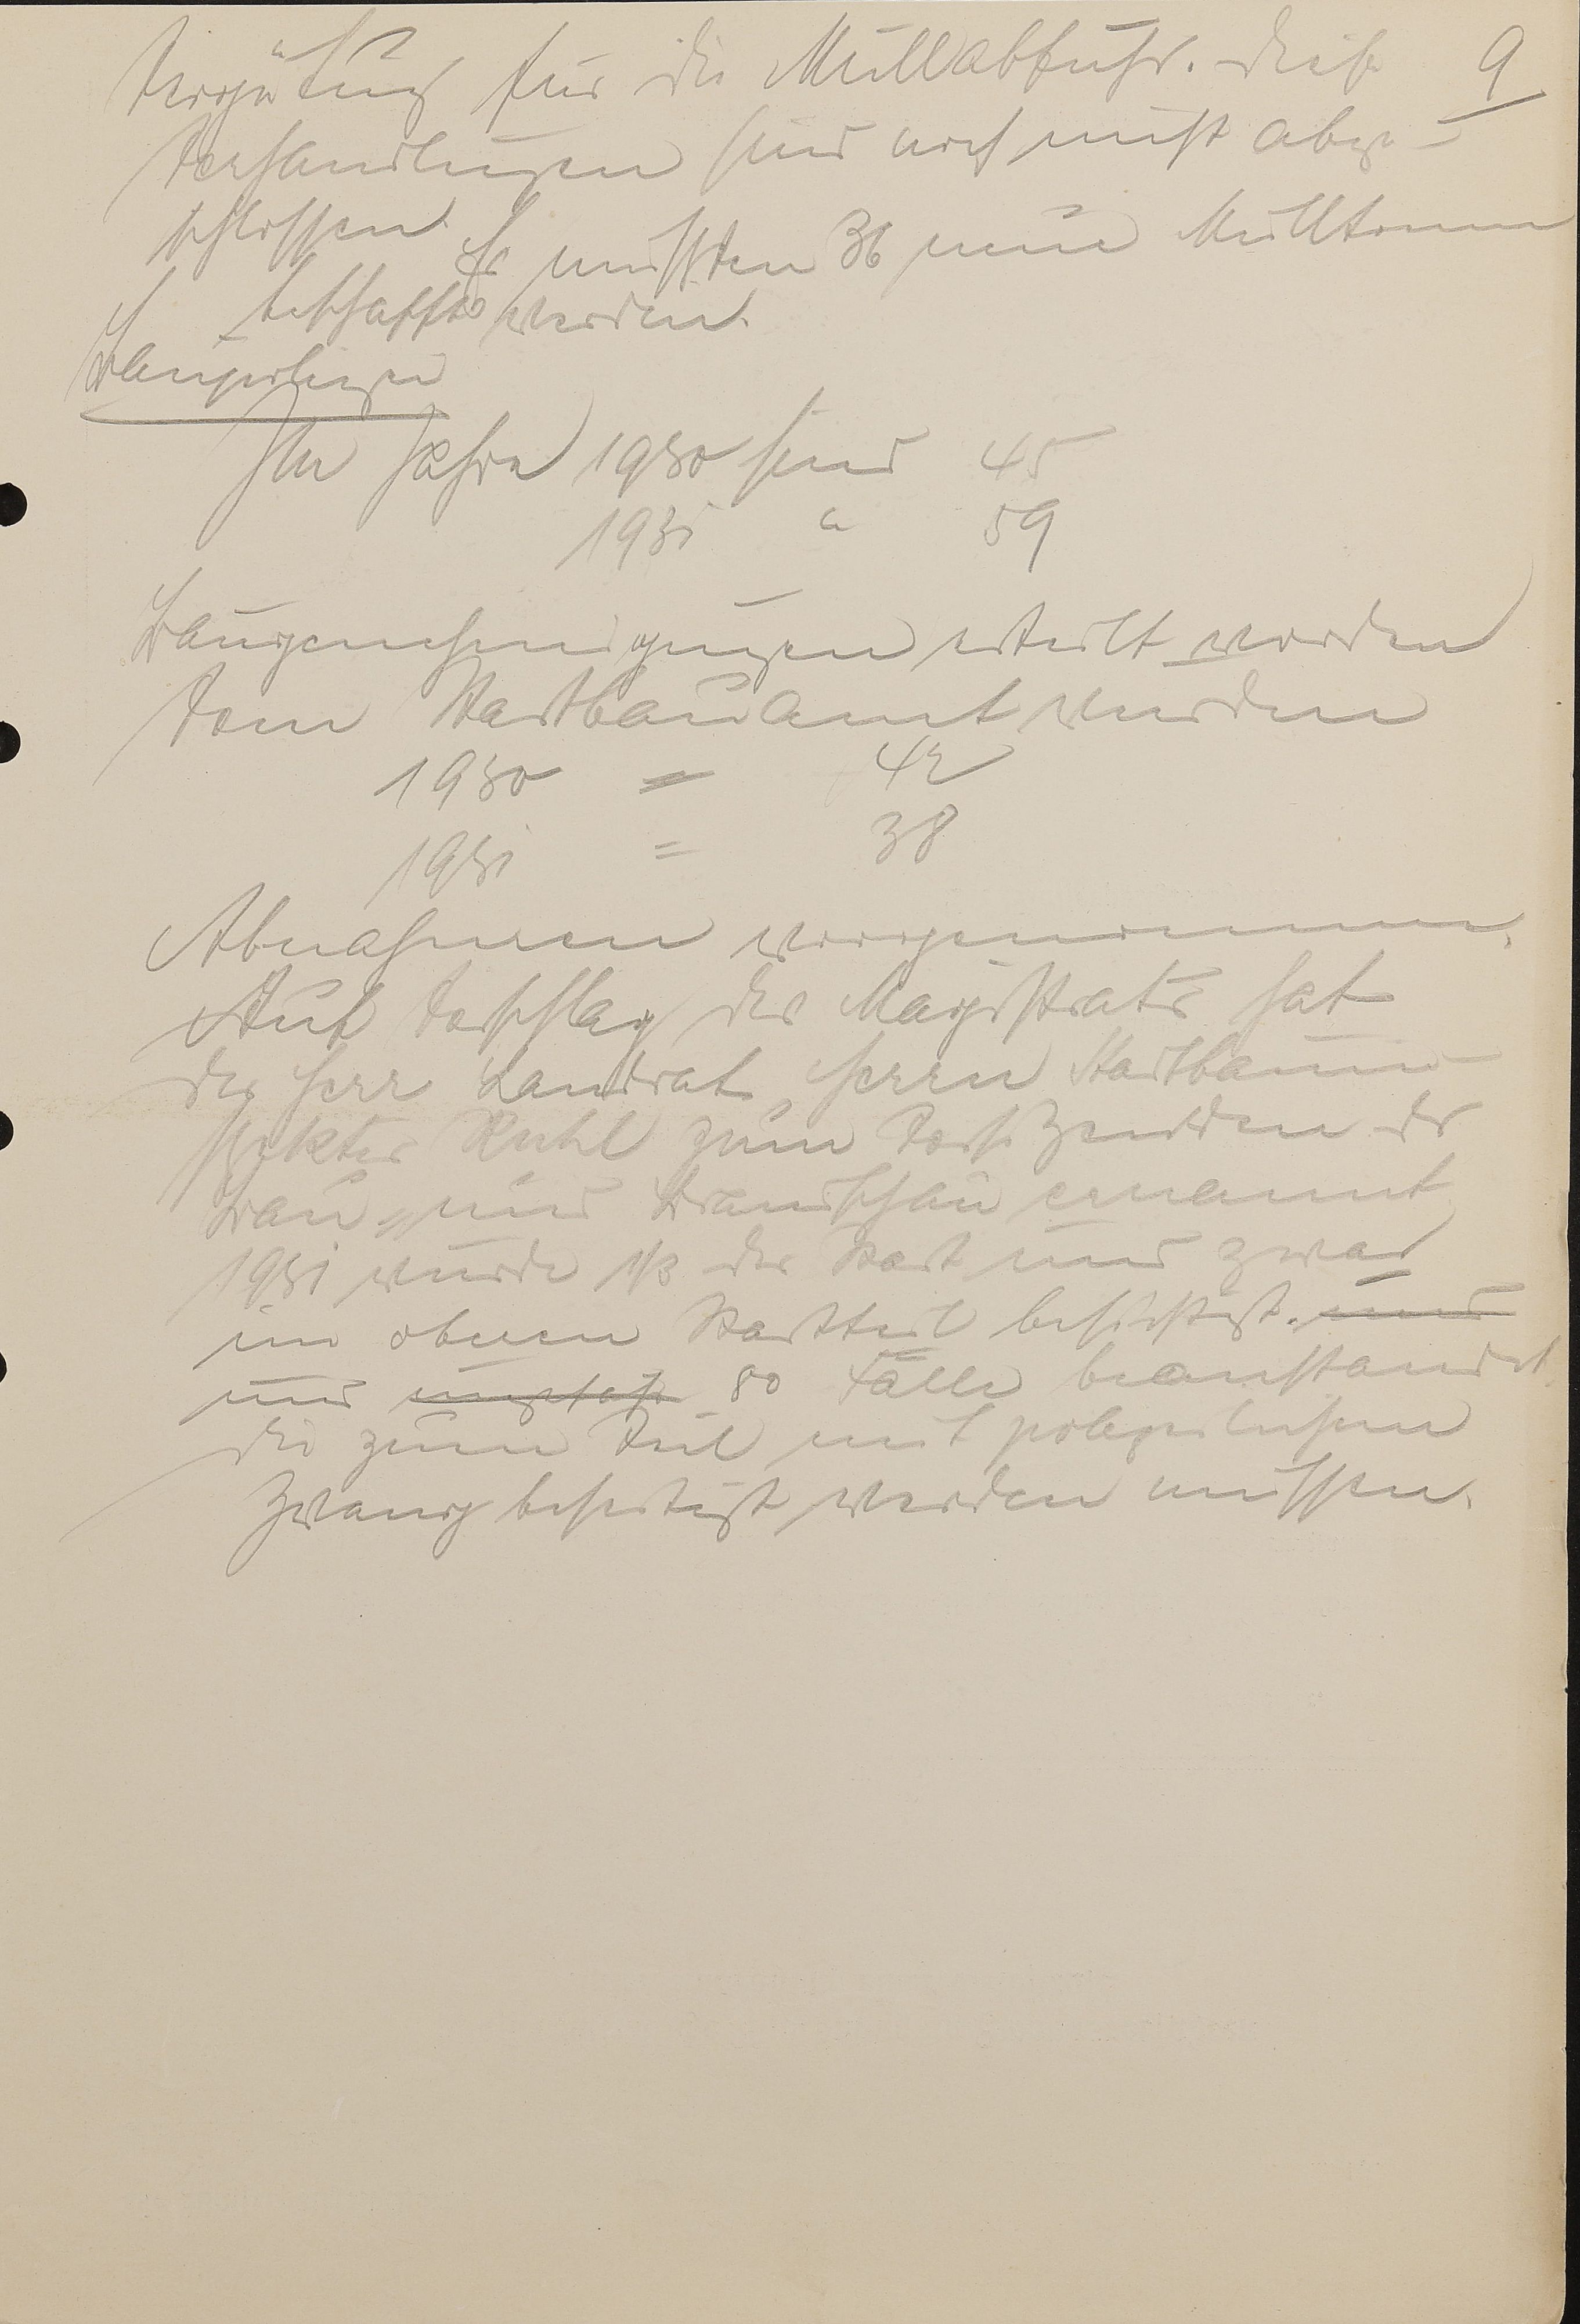 Vergütung für die Müllabfuhr. Diese 9
Verhandlungen sind noch nicht abge-
schlossen.
Es mußten 36 neue Mülltonnen
beschafft werden.
Baupolizei
Im Jahre 1930 sind 45
1931 " 59
Baugenehmigungen erteilt worden
Vom Stadtbauamt wurden
1930 = 42
1931 = 38
Abnahmen vorgenommen.
Auf Vorschlag des Magistrats hat
der Herr Landrat, Herrn Stadtbauin-
spektor Ruhl zum Vorsitzenden der
Bau- und Brandschau ernannt
1931 wurde 1/3 der Stadt und zwar
im oberen Stadtteil besichtigt. und
und ungefähr 80 Fälle beanstandet
die zum Teil mit polizeilichem
Zwang beseitigt werden müssen.